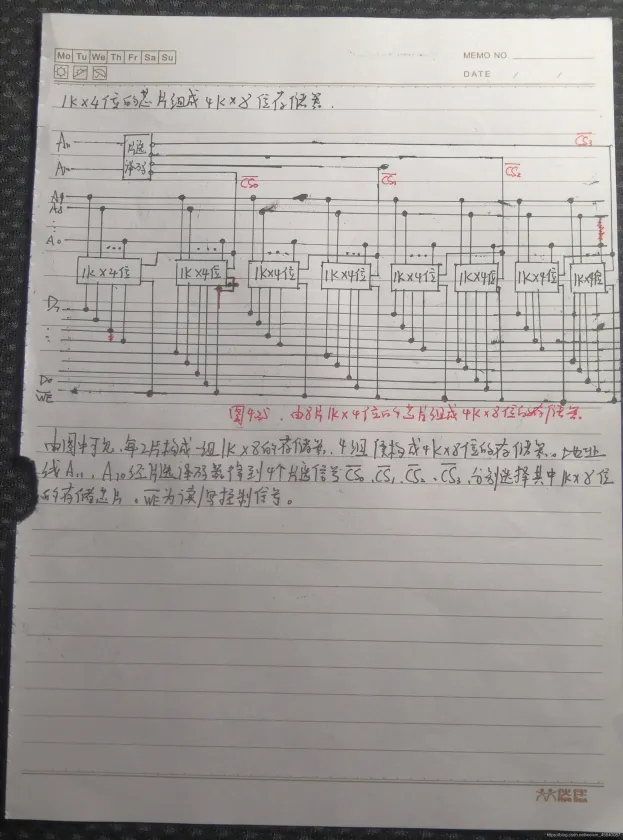 Mo Tu We Th Fr Sa Su
MEMO NO.
DATE / /
1K×4位的芯片组成4K×8位存储器.
A11 片选 CS3
A10 译码 CS0 CS1 CS2
A9
A8
⋮
A0 … … … … … … … …
1K×4位 1K×4位 1K×4位 1K×4位 1K×4位 1K×4位 1K×4位 1K×4位
D7
⋮
D0
WE
图4.25. 由8片1K×4位的芯片组成4K×8位的存储器.
由图中可见,每2片构成一组1K×8的存储器,4组便构成4K×8位的存储器.地址
线A11、A10经片选译码器得到4个片选信号CS0、CS1、CS2、CS3,分别选择其中1K×8位
的存储芯片。WE为读/写控制信号。